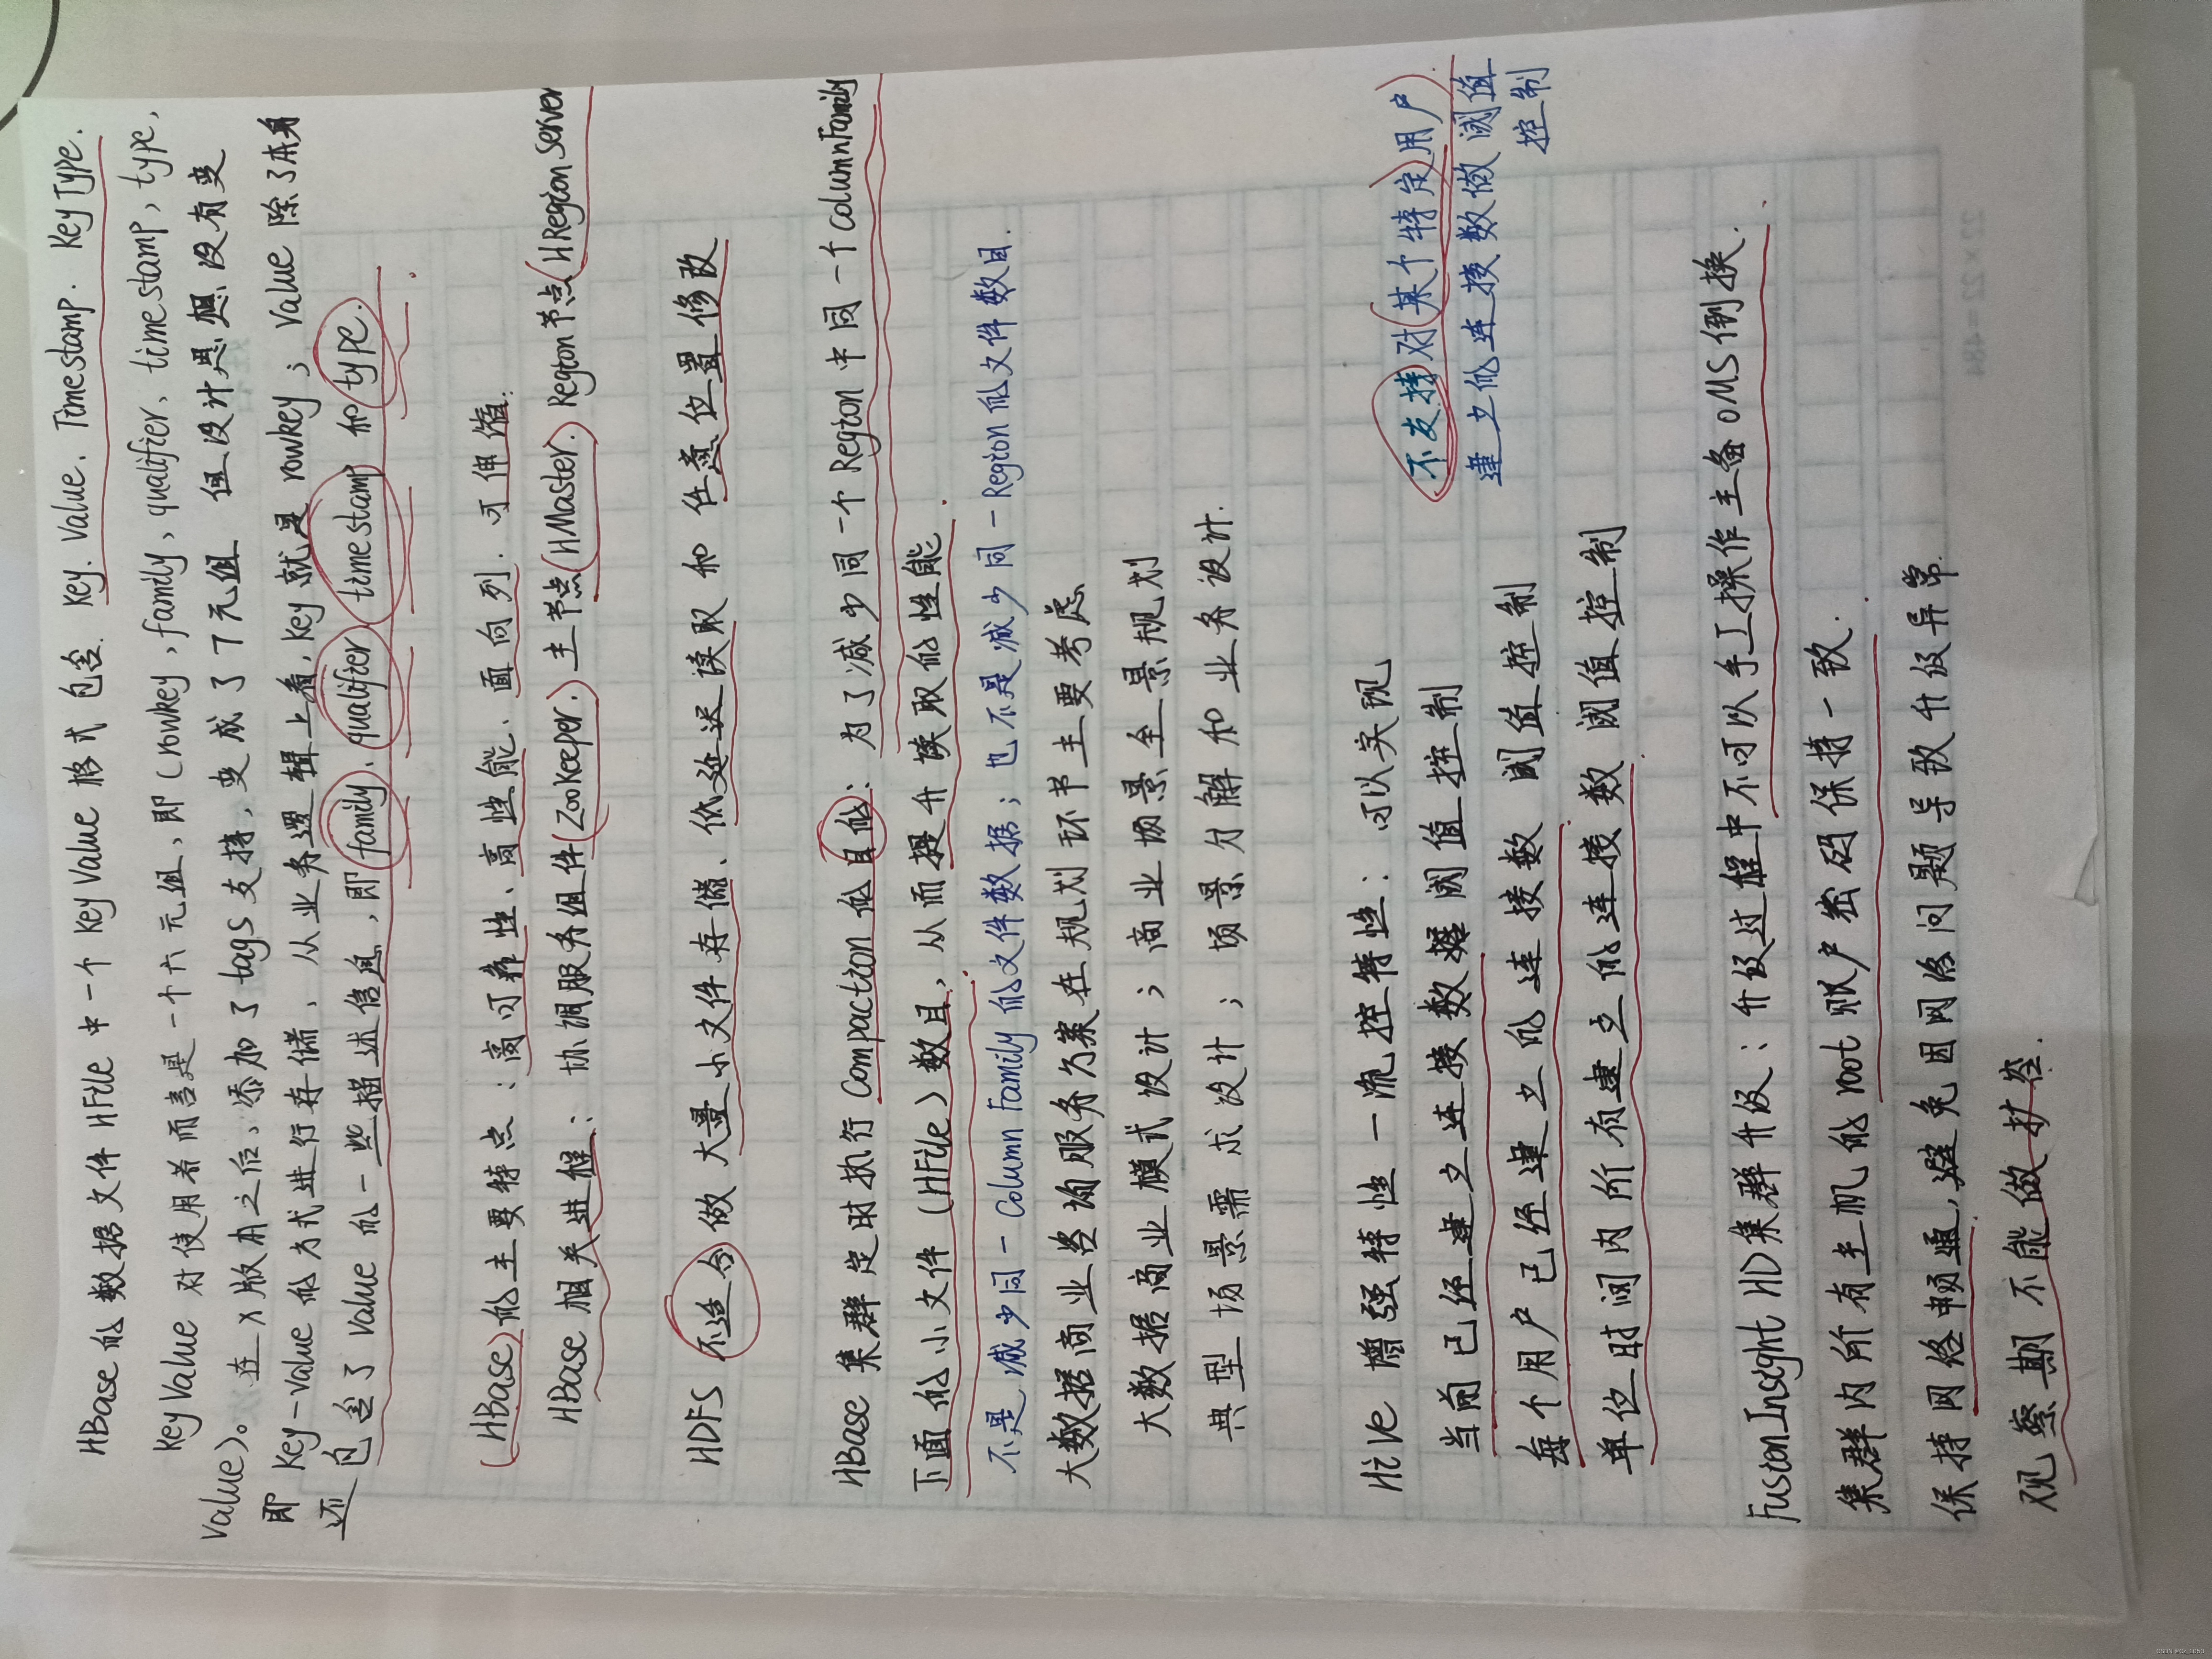 HBase的数据文件HFile中一个KeyValue格式包含Key、Value、Timestamp、KeyType.
KeyValue对使用者而言是一个六元组,即(rowkey,family,qualifier,timestamp,type,
value)。在X版本之后,添加了tags支持,变成了7元组 但设计思想没有变
即Key-Value的方式进行存储,从业务逻辑上看,key就是rowkey;value除了本身
还包含了value的一些描述信息,即family、qualifier、timestamp和type.
(HBase)的主要特点:高可靠性、高性能、面向列、可伸缩.
HBase相关进程:协调服务组件(ZooKeeper)主节点(HMaster)Region节点(HRegionServer
HDFS 不适合做大量小文件存储、低延迟读取和任意位置修改
HBase集群定时执行Compaction的目的:为了减少同一个Region中同一个ColumnFamily
下面的小文件(HFile)数目,从而提升读取的性能.
不是减少同一Column Family的文件数据;也不是减少同一Region的文件数目.
大数据商业咨询服务方案在规划环节主要考虑
大数据商业模式设计;商业场景全景规划
典型场景需求设计;场景分解和业务设计.
Hive增强特性一流控特性:可以实现
当前已经建立连接数据阈值控制
每个用户已经建立的连接数阈值控制
单位时间内所有建立的连接数阈值控制
不支持对(某个特定用户)
建立的连接数做阈值
控制
FusionInsight HD集群升级:升级过程中不可以手工操作主备OMS倒换.
集群内所有主机的root账户密码保持一致.
保持网络畅通,避免因网络问题导致升级异常.
观察期不能做扩容.
22×22=484
CSDN @CZ_1059